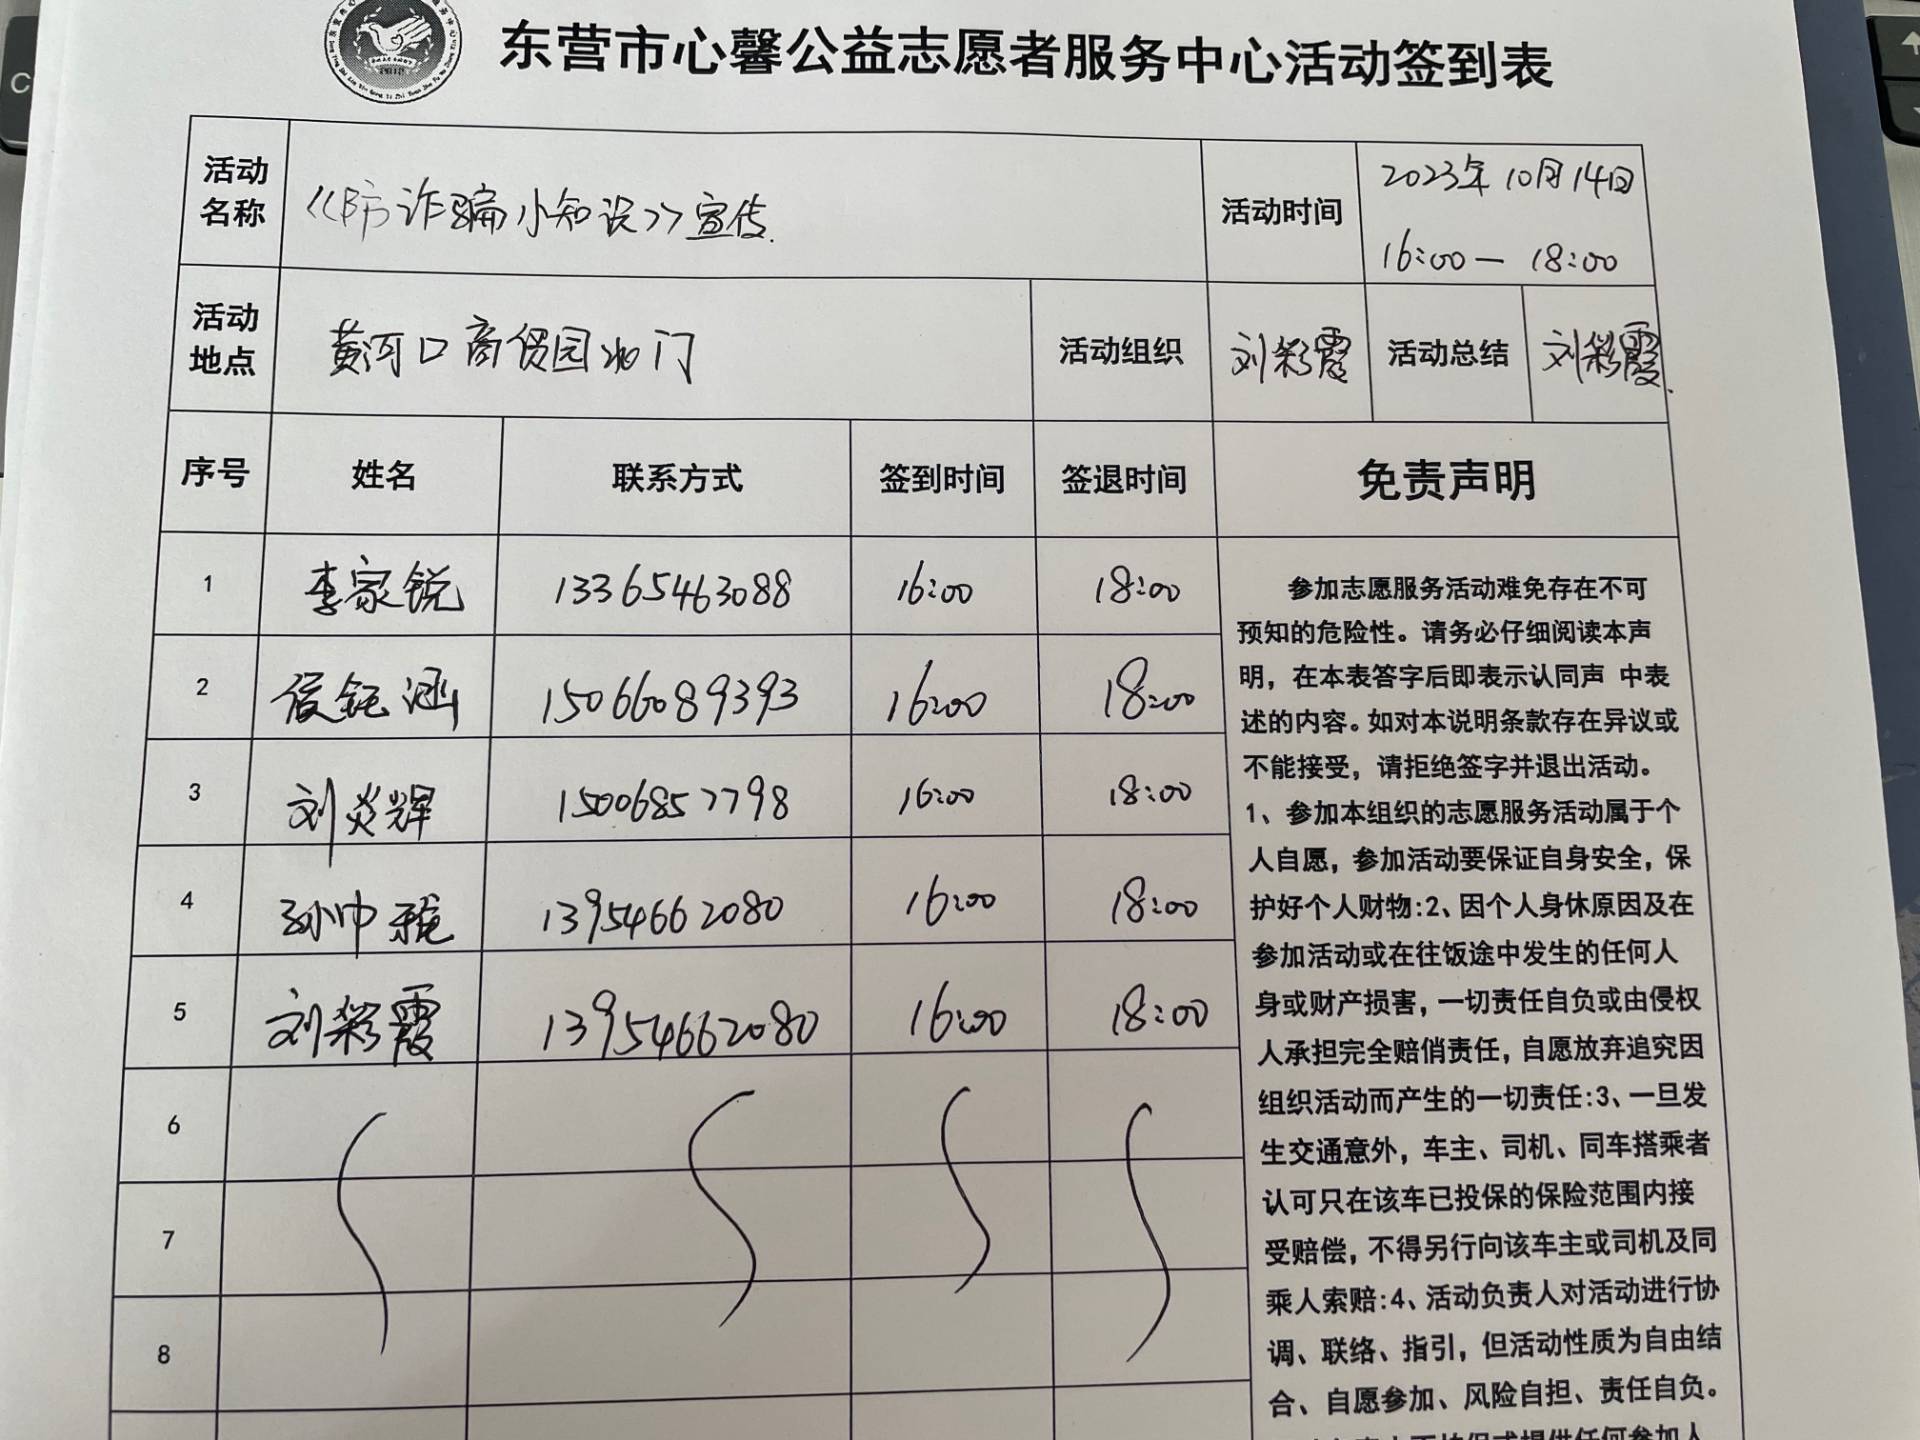 东营市心馨公益志愿者服务中心活动签到表
活动名称 《防诈骗小知识》宣传. 活动时间 2023年10月14日
16:00— 18:00
活动地点 黄河口商贸园北门 活动组织 刘彩霞 活动总结 刘彩霞.
序号 姓名 联系方式 签到时间 签退时间 免责声明
1 李家锐 13365463088 16:00 18:00
2 侯钰涵 15066089393 16:00 18:00
3 刘炎辉 15006857798 16:00 18:00
4 13954662080 16:00 18:00
5 刘彩霞 13954662080 16:00 18:00
6
7
8
参加志愿服务活动难免存在不可
预知的危险性。请务必仔细阅读本声
明，在本表答字后即表示认同声 中表
述的内容。如对本说明条款存在异议或
不能接受，请拒绝签字并退出活动。
1、参加本组织的志愿服务活动属于个
人自愿，参加活动要保证自身安全，保
护好个人财物:2、因个人身休原因及在
参加活动或在往饭途中发生的任何人
身或财产损害，一切责任自负或由侵权
人承担完全赔俏责任，自愿放弃追究因
组织活动而产生的一切责任:3、一旦发
生交通意外，车主、司机、同车搭乘者
认可只在该车已投保的保险范围内接
受赔偿，不得另行向该车主或司机及同
乘人索赔:4、活动负责人对活动进行协
调、联络、指引，但活动性质为自由结
合、自愿参加、风险自担、责任自负。